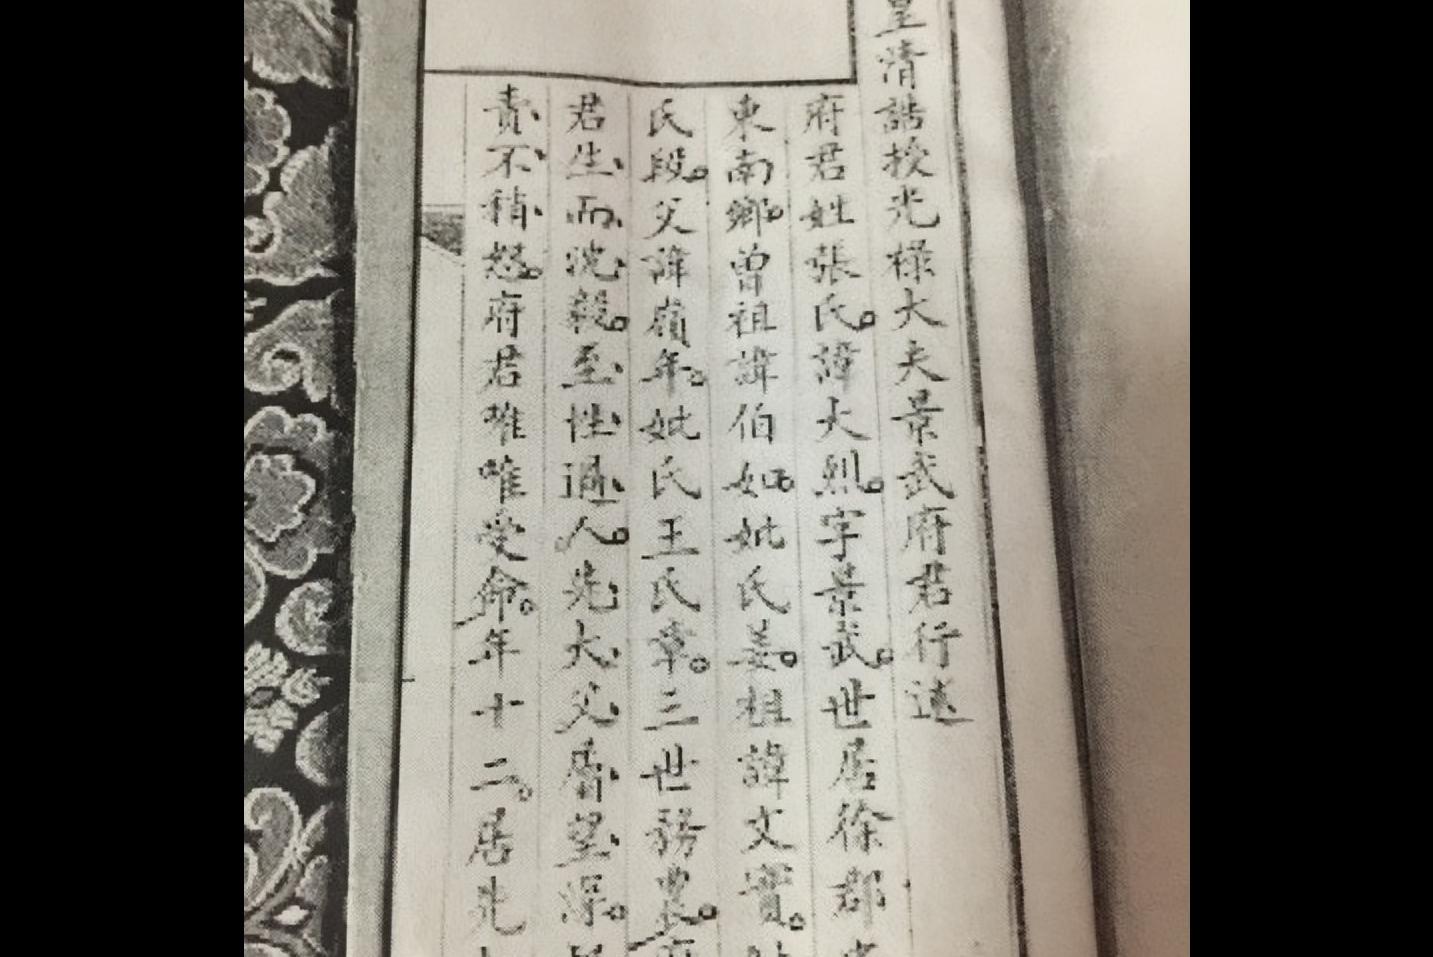 皇清誥授光祿大夫景武府君行述
府君姓張氏。諱大烈。字景武。世居徐郡
東南鄉。曾祖諱伯如。妣氏姜。祖諱文實。
氏段。父諱嶺年。妣氏王氏章。三世務農。府
君生而沈毅。至性過人。先大父屬望深。
責不稍恕。府君唯唯受命。年十二。居先